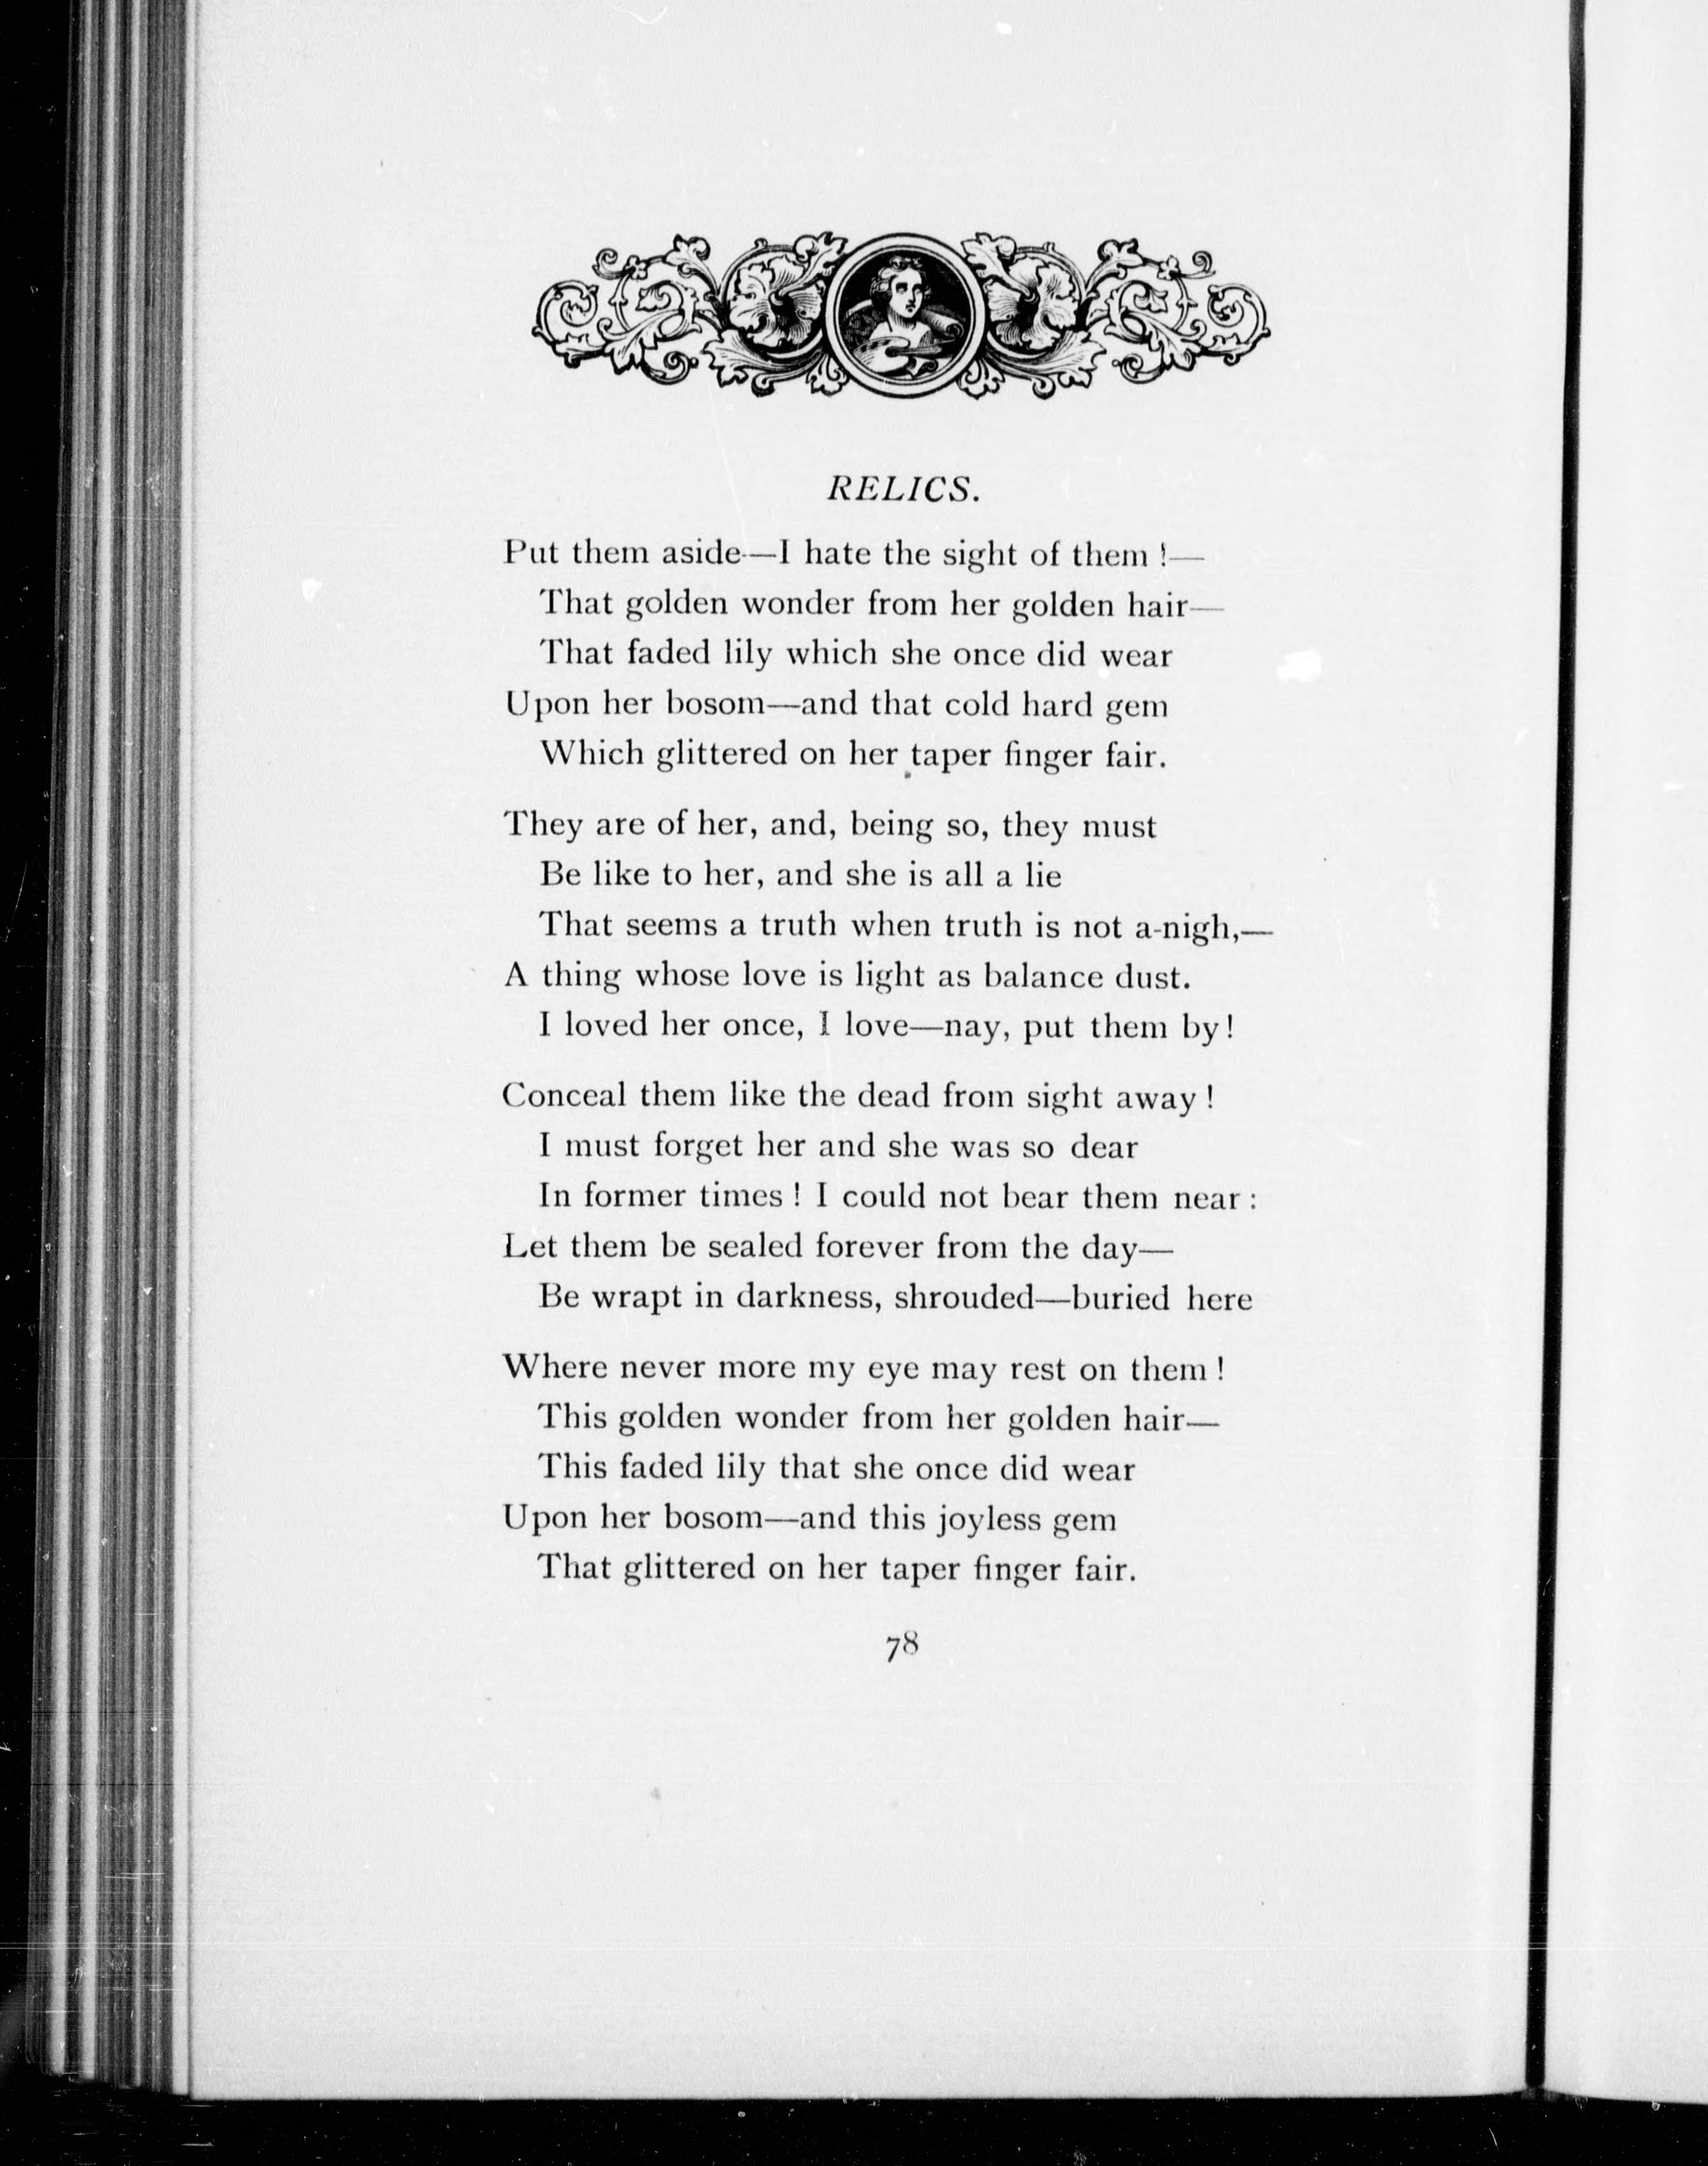 RELICS.
Put them aside—I hate the sight of them !—
That golden wonder from her golden hair—
That faded lily which she once did wear
Upon her bosom—and that cold hard gem
Which glittered on her taper finger fair.
They are of her, and, being so, they must
Be like to her, and she is all a lie
That seems a truth when truth is not a-nigh,—
A thing whose love is light as balance dust.
I loved her once, I love—nay, put them by!
Conceal them like the dead from sight away !
I must forget her and she was so dear
In former times ! I could not bear them near :
Let them be sealed forever from the day—
Be wrapt in darkness, shrouded—buried here
Where never more my eye may rest on them !
This golden wonder from her golden hair—
This faded lily that she once did wear
Upon her bosom—and this joyless gem
That glittered on her taper finger fair.
78